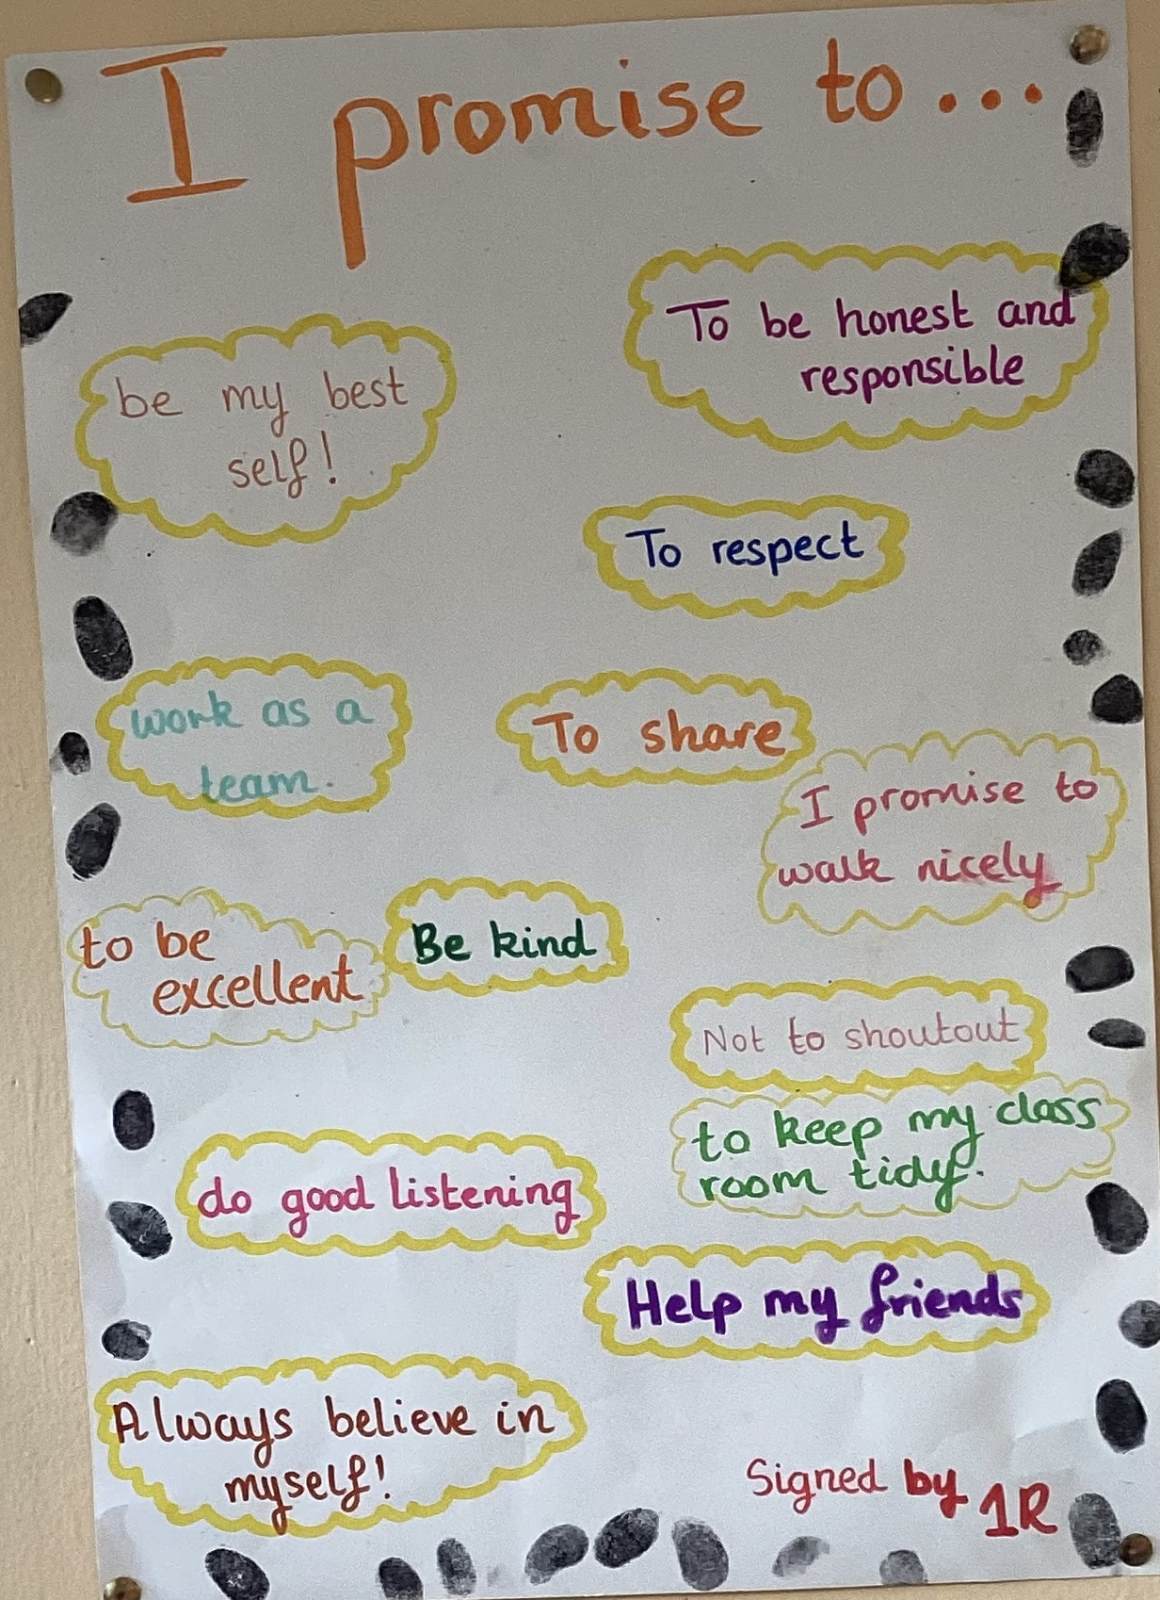 I promise to...
To be honest and
responsible
be my best
self!
To respect
work as a
team.
To share
I promise to
walk nicely
to be
excellent
Be kind
Not to shoutout
to keep my class
room tidy.
do good listening
Help my friends
Always believe in
myself!
Signed by 1R